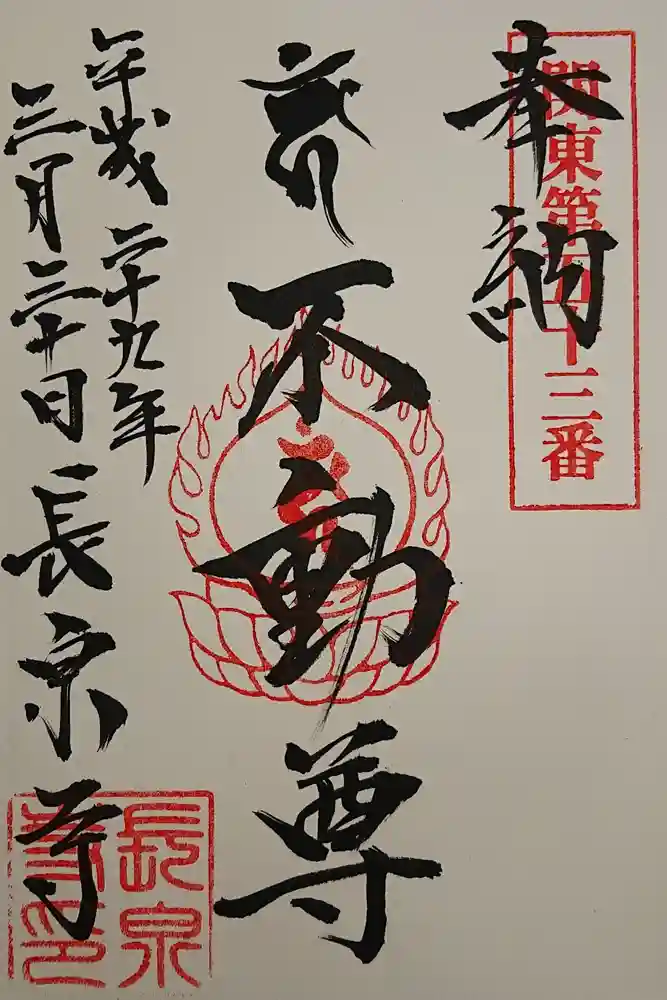 奉納
関東第五十三番
不動尊
平成二十九年
三月三十日
長泉寺
長泉寺印